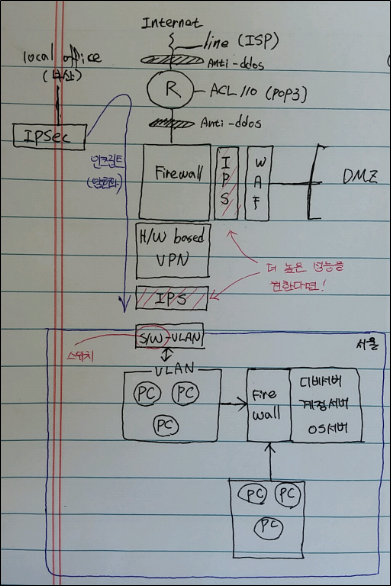 Internet
line (ISP)
Anti-ddos
local office
(부산)
R
ACL 110 (POP3)
IPSec
Anti-ddos
인크립트
(암호화)
Firewall
IPS
WAF
DMZ
H/W based
VPN
더 높은 성능을
원한다면!
IPS
S/W-VLAN
서울
스위치
VLAN
PC PC
PC
Fire
wall
디비서버
계정서버
OS서버
PC PC
PC